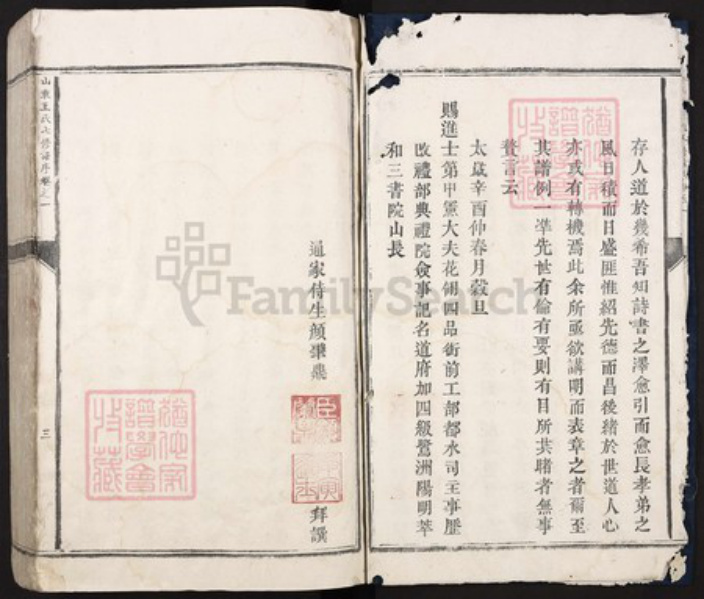 存人道於幾希吾知詩書之澤愈引而愈長孝弟之
風日積而日盛匪惟紹先德而昌後緒於世道人心
亦或有轉機焉此余所亟欲講明而表章之者爾至
其譜例一準先世有倫有要則有目所共睹者無事
贅言云
太歲辛酉仲春月穀旦
賜進士第中憲大夫花翎四品銜前工部都水司主事歷
改禮部典禮院僉事記名道府加四級鷺洲陽明萃
和三書院山長
通家侍生顏
拜譔
山東王氏七修譜序卷之一
三
譜學會
收藏
譜學會
收藏
FamilySearch